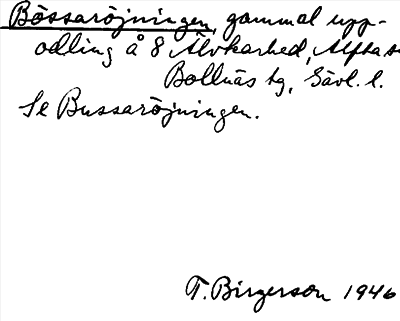 Bössaröjningen, gammal upp-
odling å 8 Älvkarhed, Alfta s
Bollnäs tg, Gävl. l.
Se Bussaröjningen.
T. Birgerson 1946